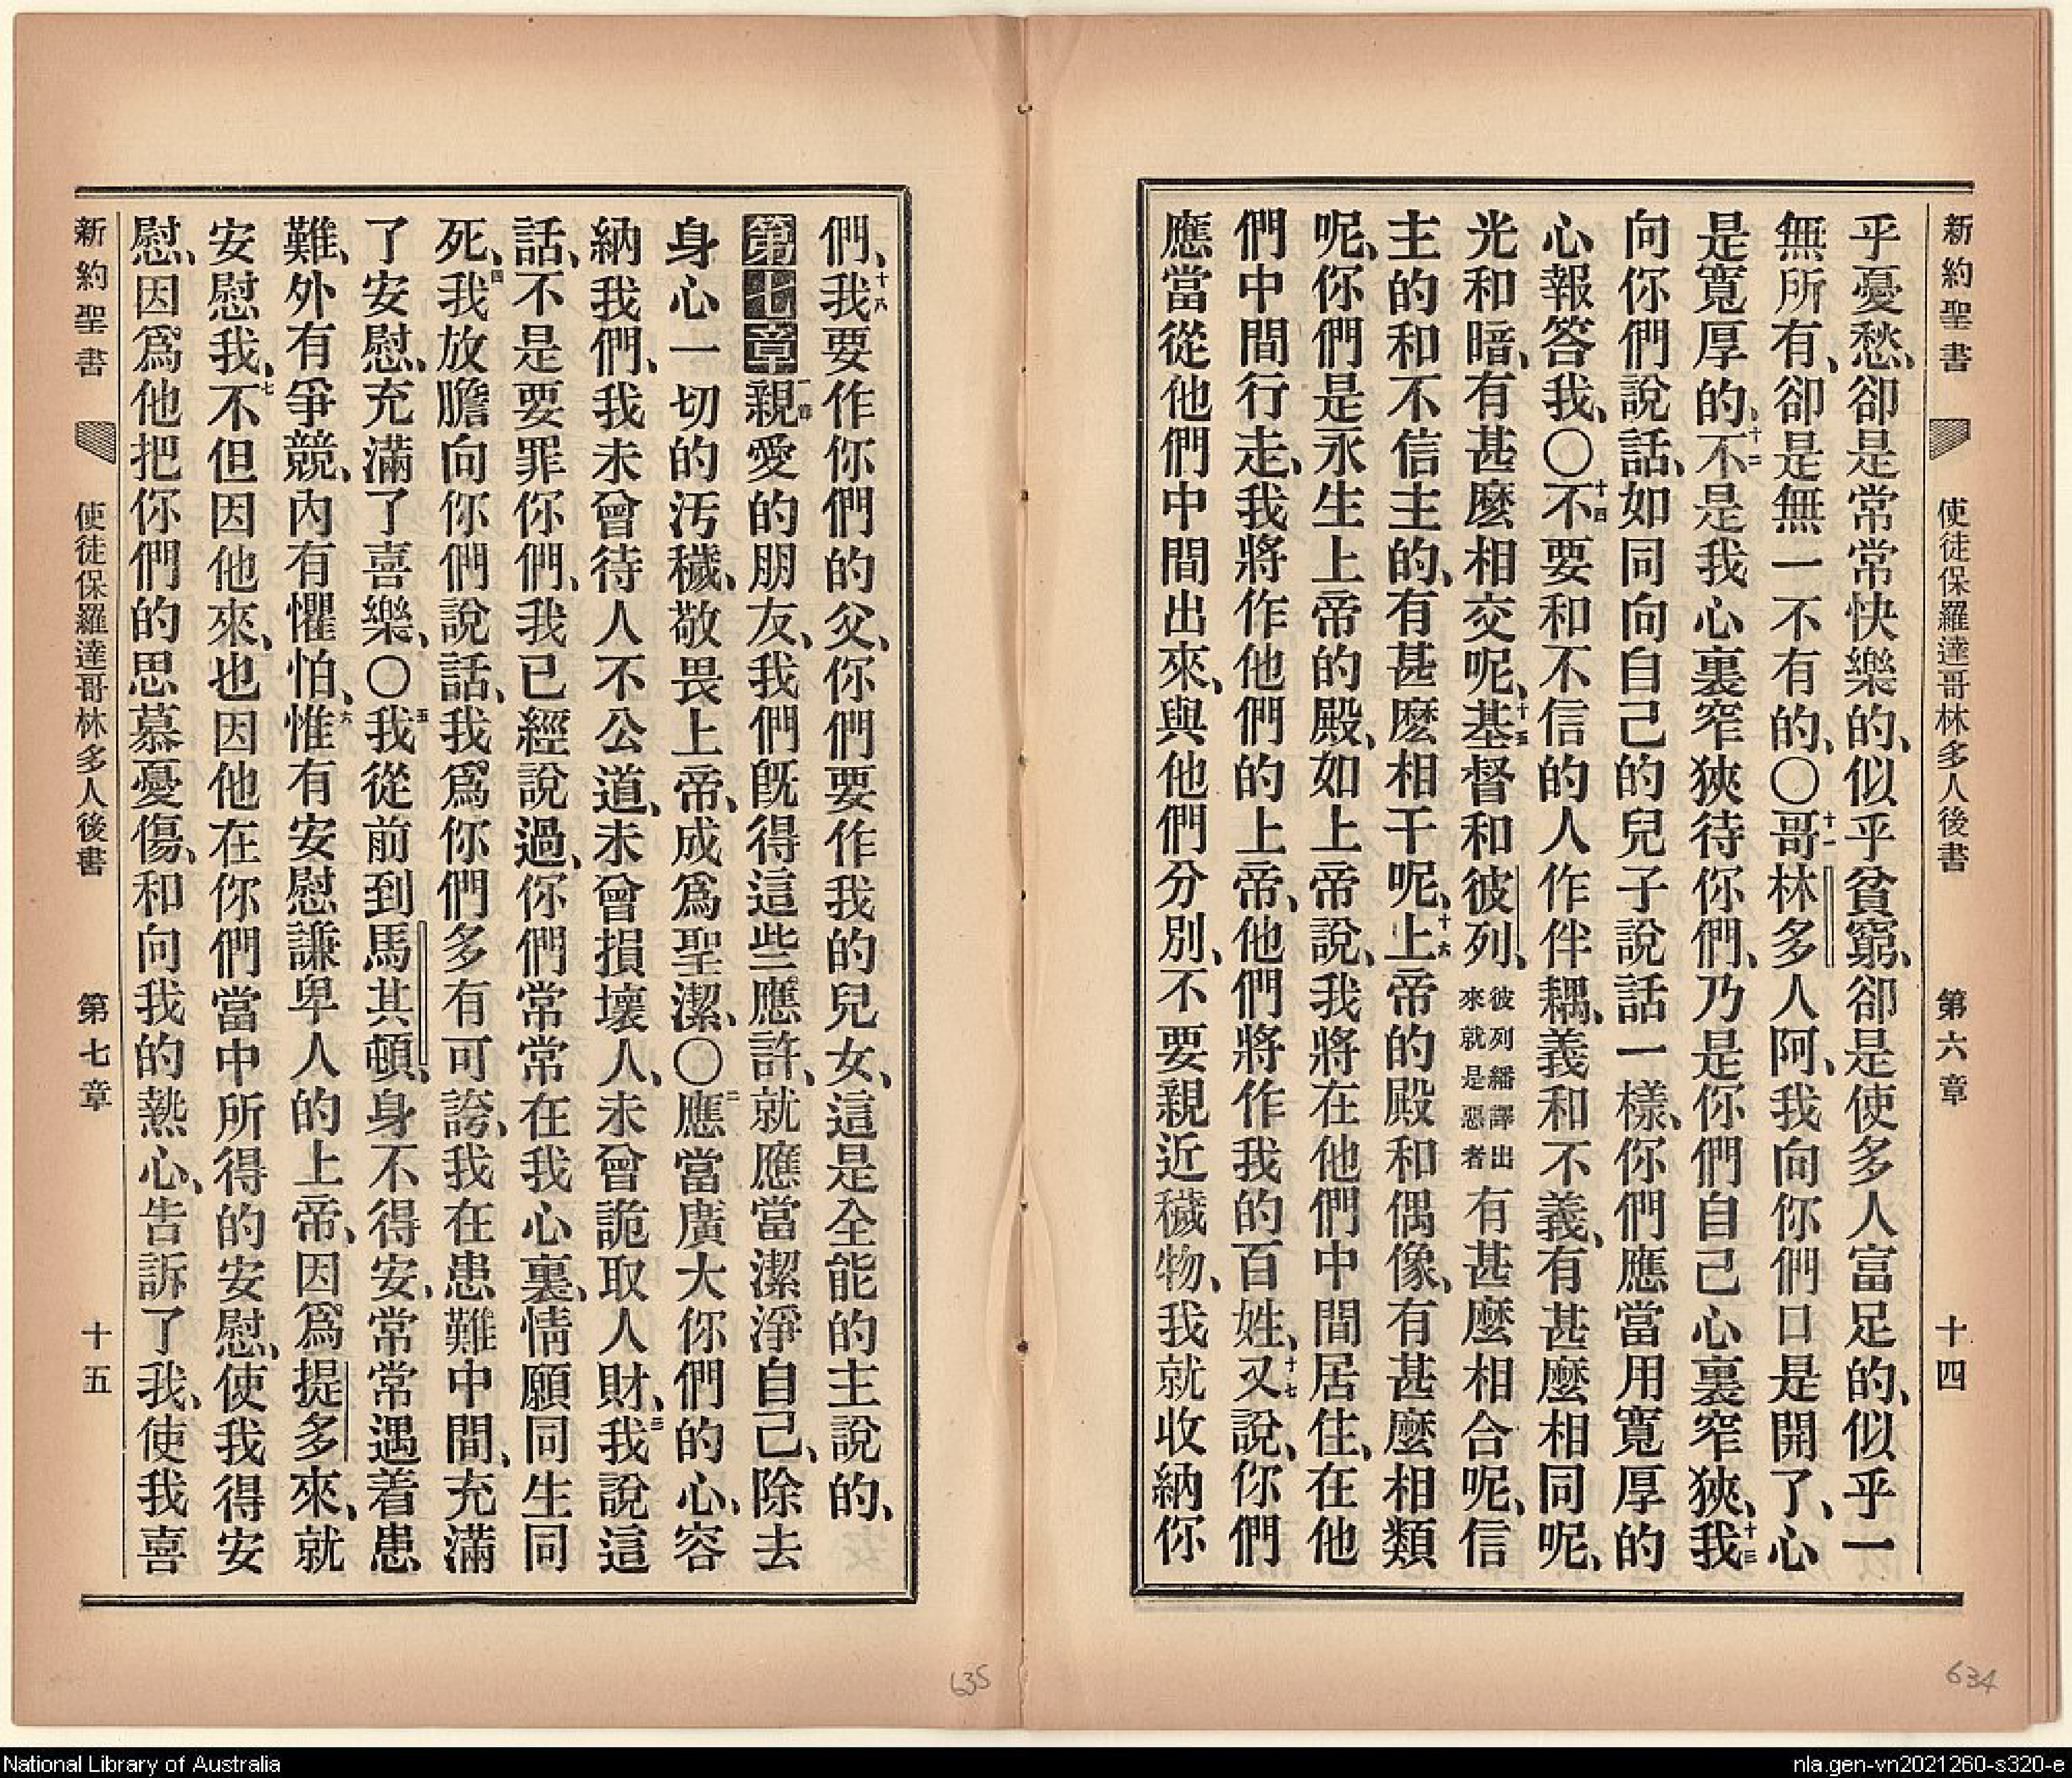 新約聖書 使徒保羅達哥林多人後書 第六章 十四
乎憂愁、卻是常常快樂的、似乎貧窮、卻是使多人富足的、似乎一
無所有、卻是無一不有的、〇十一哥林多人阿、我向你們口是開了、心
是寬厚的、十二不是我心裏窄狹待你們、乃是你們自己心裏窄狹、十三我
向你們說話、如同向自己的兒子說話一樣、你們應當用寬厚的
心報答我、〇十四不要和不信的人作伴耦、義和不義、有甚麼相同呢、
光和暗、有甚麼相交呢、十五基督和彼列、彼列繙譯出來就是惡者有甚麼相合呢、信
主的和不信主的、有甚麼相干呢、十六上帝的殿和偶像、有甚麼相類
呢、你們是永生上帝的殿、如上帝說、我將在他們中間居住、在他
們中間行走、我將作他們的上帝、他們將作我的百姓、十七又說、你們
應當從他們中間出來、與他們分別、不要親近穢物、我就收納你
們、十八我要作你們的父、你們要作我的兒女、這是全能的主說的、
第七章一節親愛的朋友、我們旣得這些應許、就應當潔淨自己、除去
身心一切的污穢、敬畏上帝、成爲聖潔、〇二應當廣大你們的心、容
納我們、我未曾待人不公道、未曾損壞人、未曾詭取人財、三我說這
話、不是要罪你們、我已經說過、你們常常在我心裏、情願同生同
死、四我放膽向你們說話、我爲你們多有可誇、我在患難中間、充滿
了安慰、充滿了喜樂、〇五我從前到馬其頓、身不得安、常常遇着患
難、外有爭競、內有懼怕、六惟有安慰謙卑人的上帝、因爲提多來、就
安慰我、七不但因他來、也因他在你們當中所得的安慰、使我得安
慰、因爲他把你們的思慕憂傷、和向我的熱心、告訴了我、使我喜
新約聖書 使徒保羅達哥林多人後書 第七章 十五
635
634
National Library of Australia
nla.gen-vn2021260-s320-e